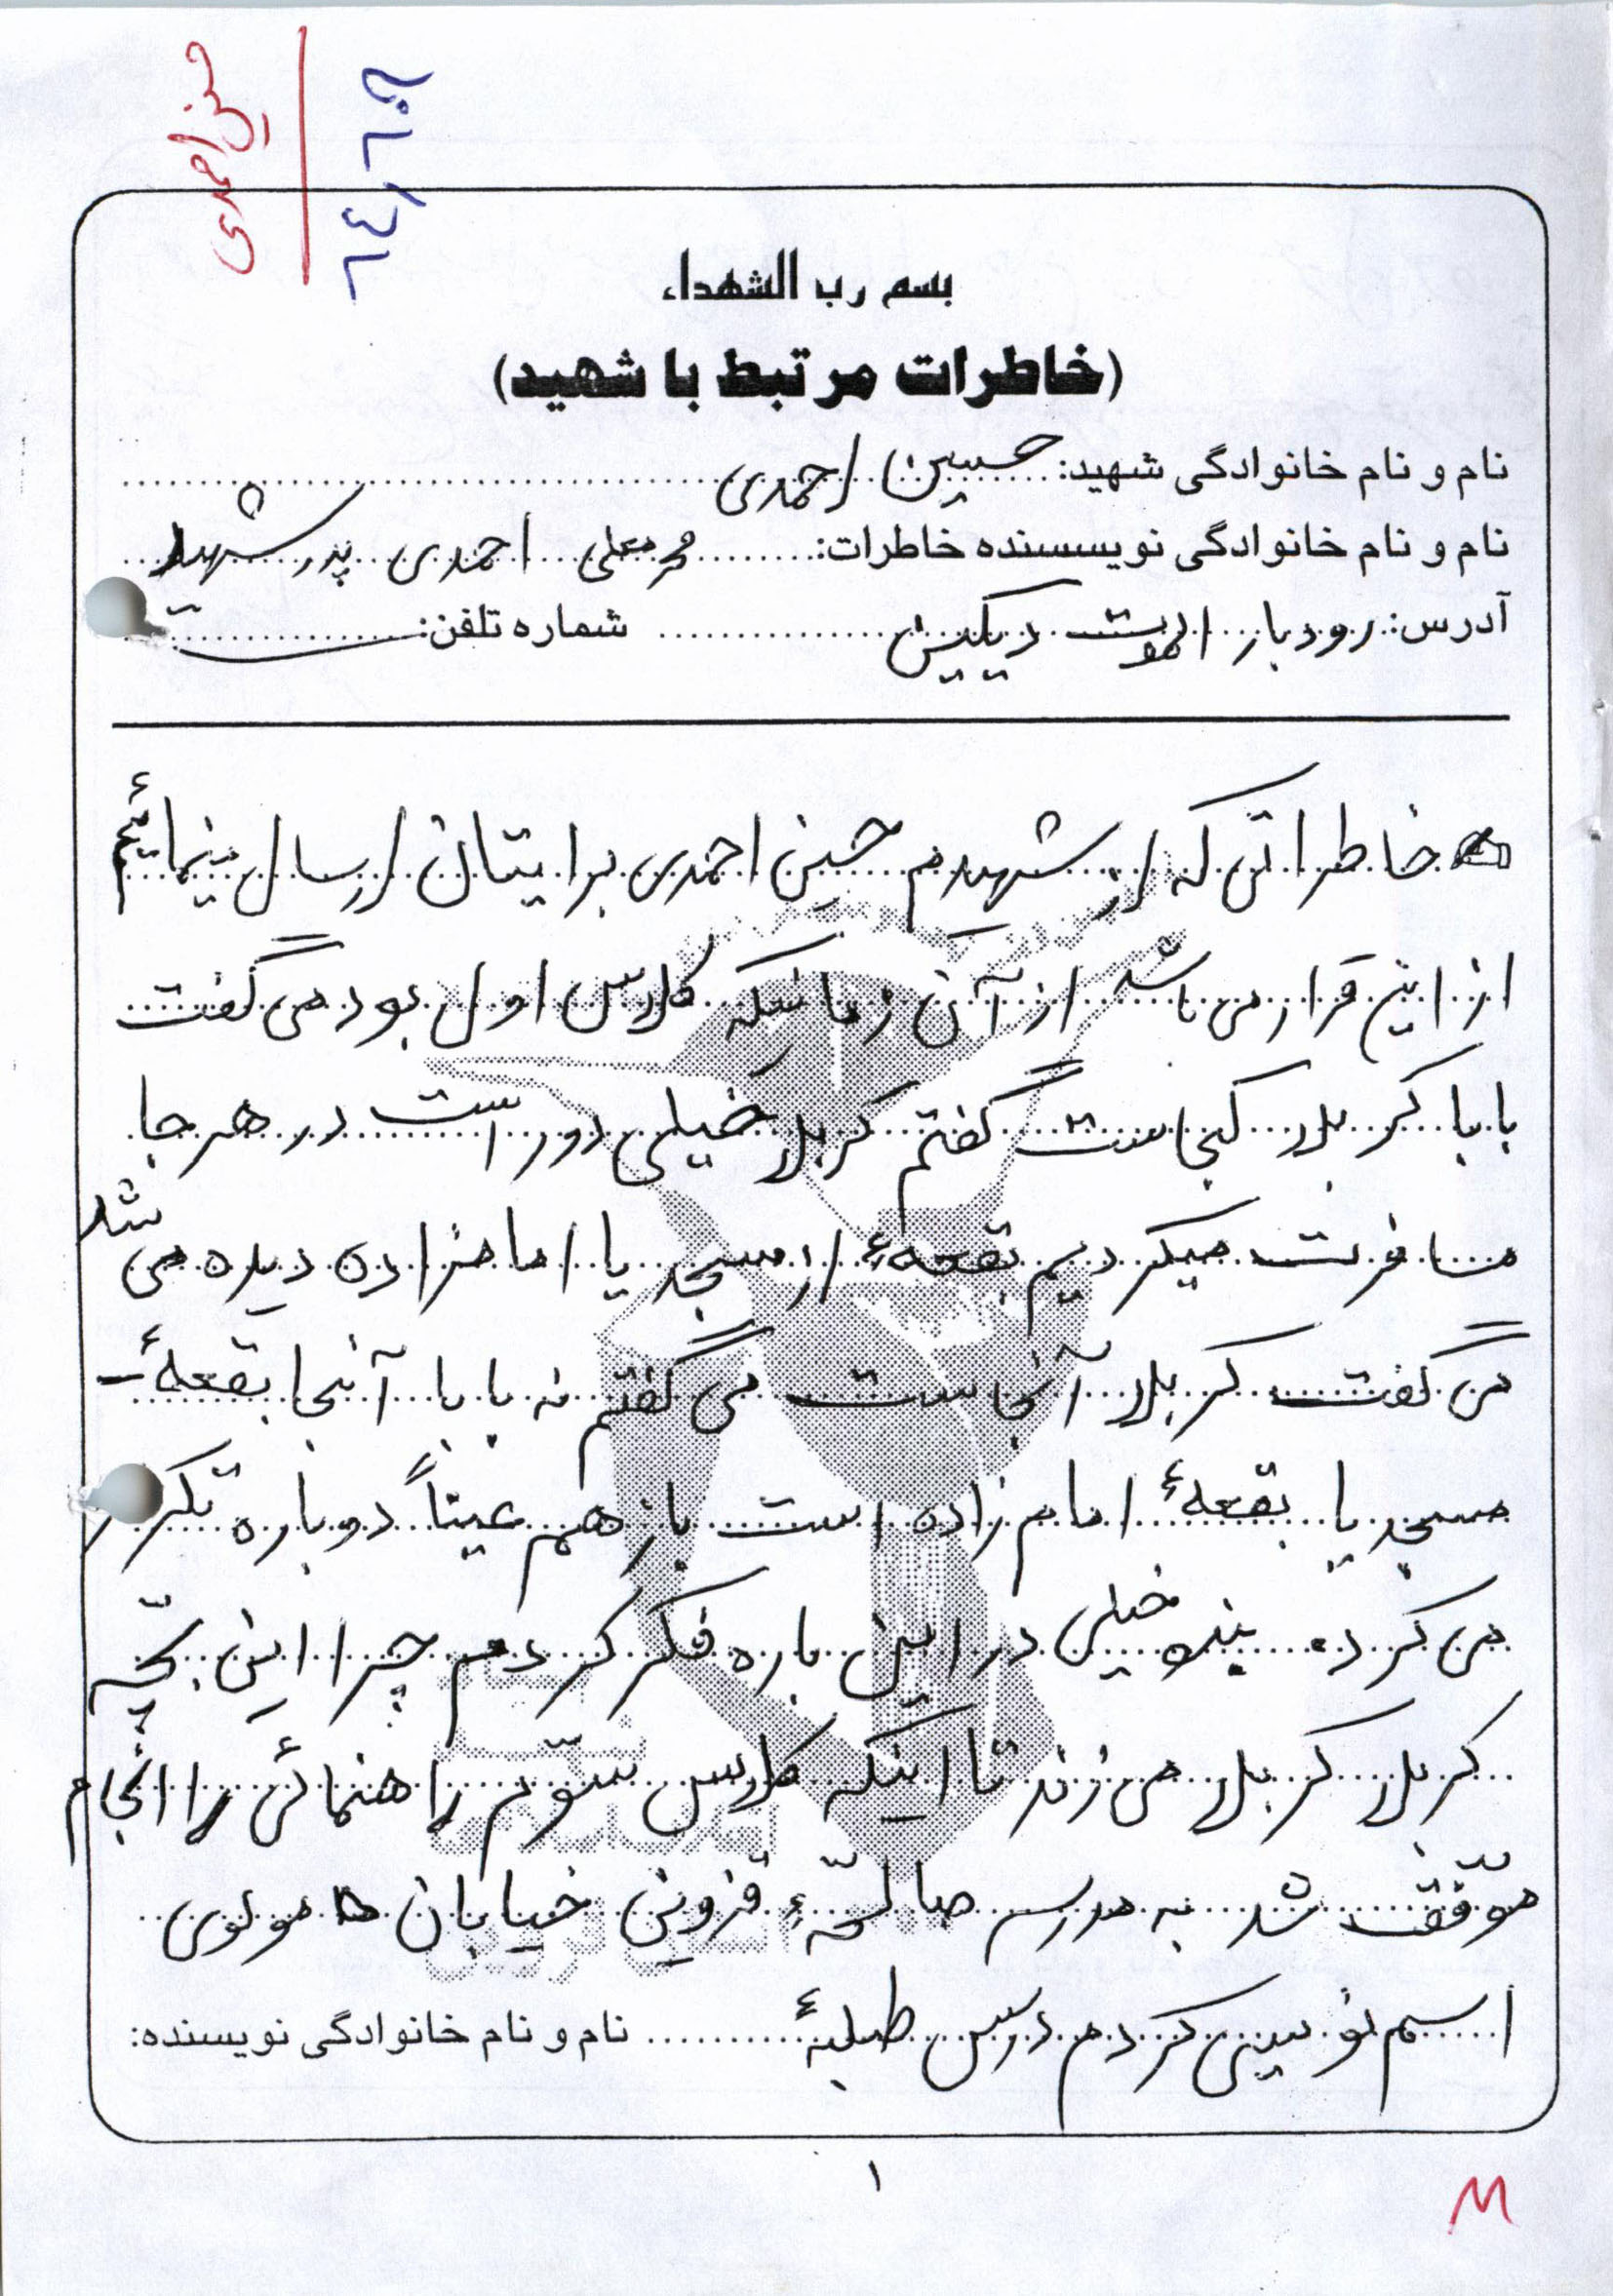 حسین احمدی
بسم رب الشهداء
(خاطرات مرتبط با شهید)
نام و نام خانوادگی شهید: حسین احمدی
نام و نام خانوادگی نویسنده خاطرات: محمدعلی احمدی پدر شهید
آدرس: رودبار الموت دیکین شماره تلفن:
خاطراتی که از شهیدم حسین احمدی برایتان ارسال مینمائیم
از این قرار می باشد از آن زمانیکه کلاس اول بود می گفت
بابا کربلا کجاست گفتم کربلا خیلی دور است در هر جا
مسافرت میکردیم بقعهٔ از مسجد یا امامزاده دیده می شد
می گفت کربلا آنجاست می گفتم نه بابا آنجا بقعهٔ
مسجد یا بقعهٔ امام زاده است باز هم عیناً دوباره تکرار
می کرد. بنده خیلی در این باره فکر کردم چرا این بچّه
کربلا کربلا می زند تا اینکه کلاس سوّم راهنمائی را انجام
موّفق شد به مدرسه صالحیّهٔ قزوین خیابان مولوی
اسم نویسی کردم درس طلبهٔ نام و نام خانوادگی نویسنده:
۱